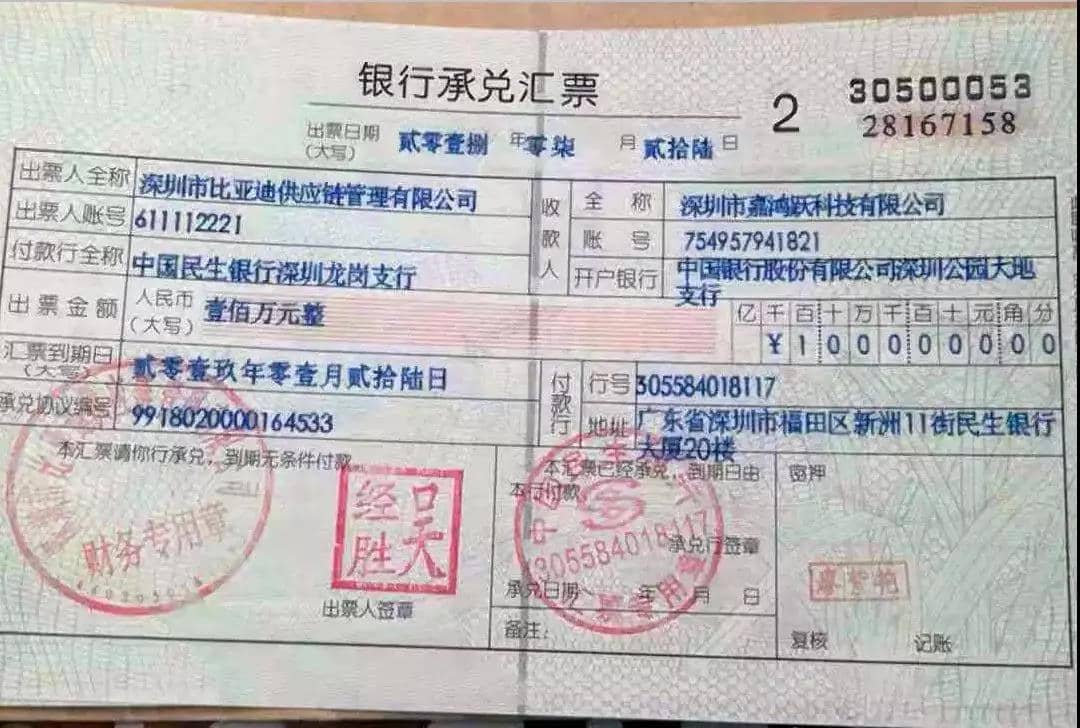 银行承兑汇票
2
30500053
28167158
出票日期
(大写)
贰零壹捌 年 零柒 月 贰拾陆 日
出票人全称 深圳市比亚迪供应链管理有限公司
出票人账号 611112221
付款行全称 中国民生银行深圳龙岗支行
收款人
全称 深圳市嘉鸿跃科技有限公司
账号 754957941821
开户银行 中国银行股份有限公司深圳公园大地
支行
出票金额 人民币
(大写) 壹佰万元整
亿千百十万千百十元角分
¥1000000 00
汇票到期日
(大写) 贰零壹玖年零壹月贰拾陆日
承兑协议编号 99180200000164533
付款行
行号 305584018117
地址 广东省深圳市福田区新洲11街民生银行
大厦20楼
本汇票请你行承兑,到期无条件付款
财务专用章
吴天
经胜
出票人签章
本汇票已经承兑,到期日由
本行付款
305584018117
承兑行签章
承兑日期 年 月 日
备注:
密押
复核 记账